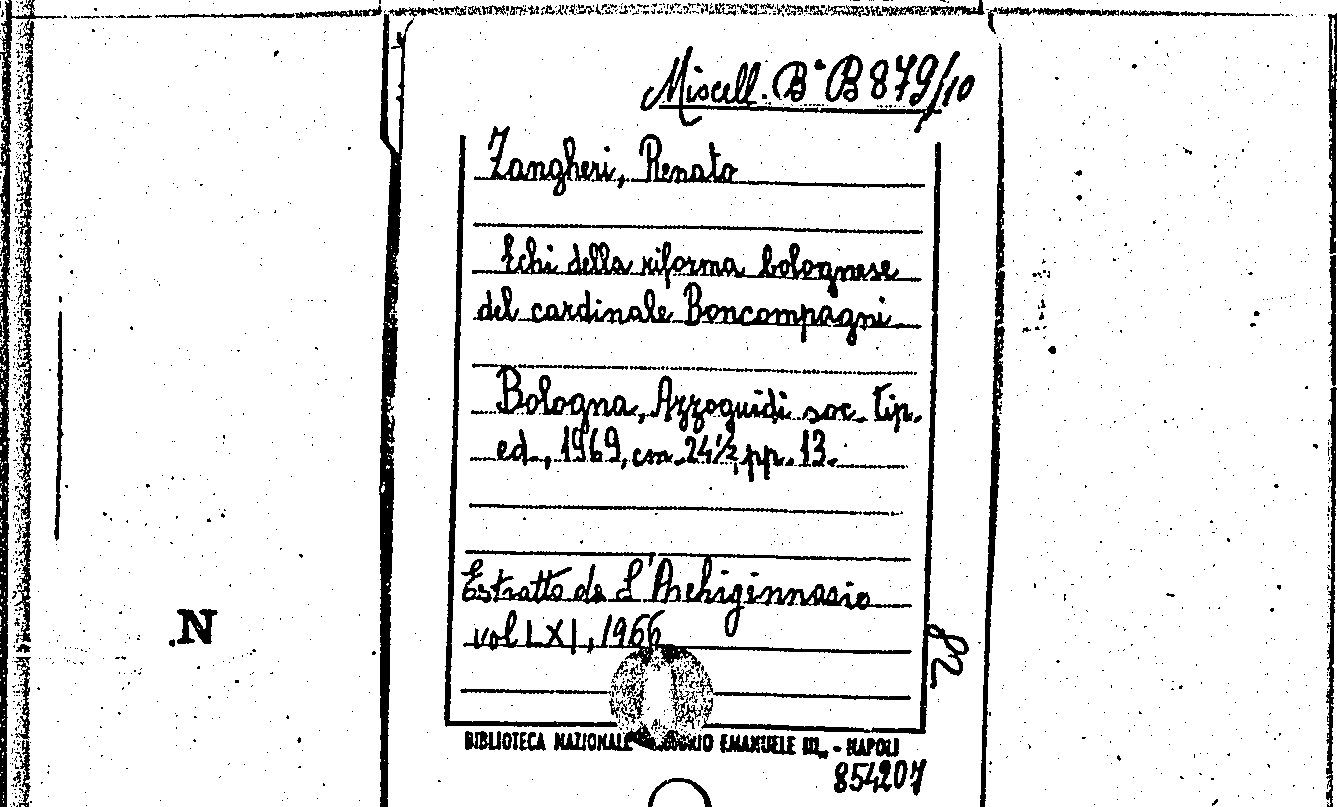 Miscell. Bª B 879/10
Zangheri, Renato
Echi della riforma bolognese
del cardinale Boncompagni
Bologna, Azzoguidi soc. tip.
ed., 1969, cm. 24½, pp. 13.
Estratto da L'Archiginnasio
vol LXI, 1966
82
N
BIBLIOTECA NAZIONALE EMANUELE III. - NAPOLI
854207